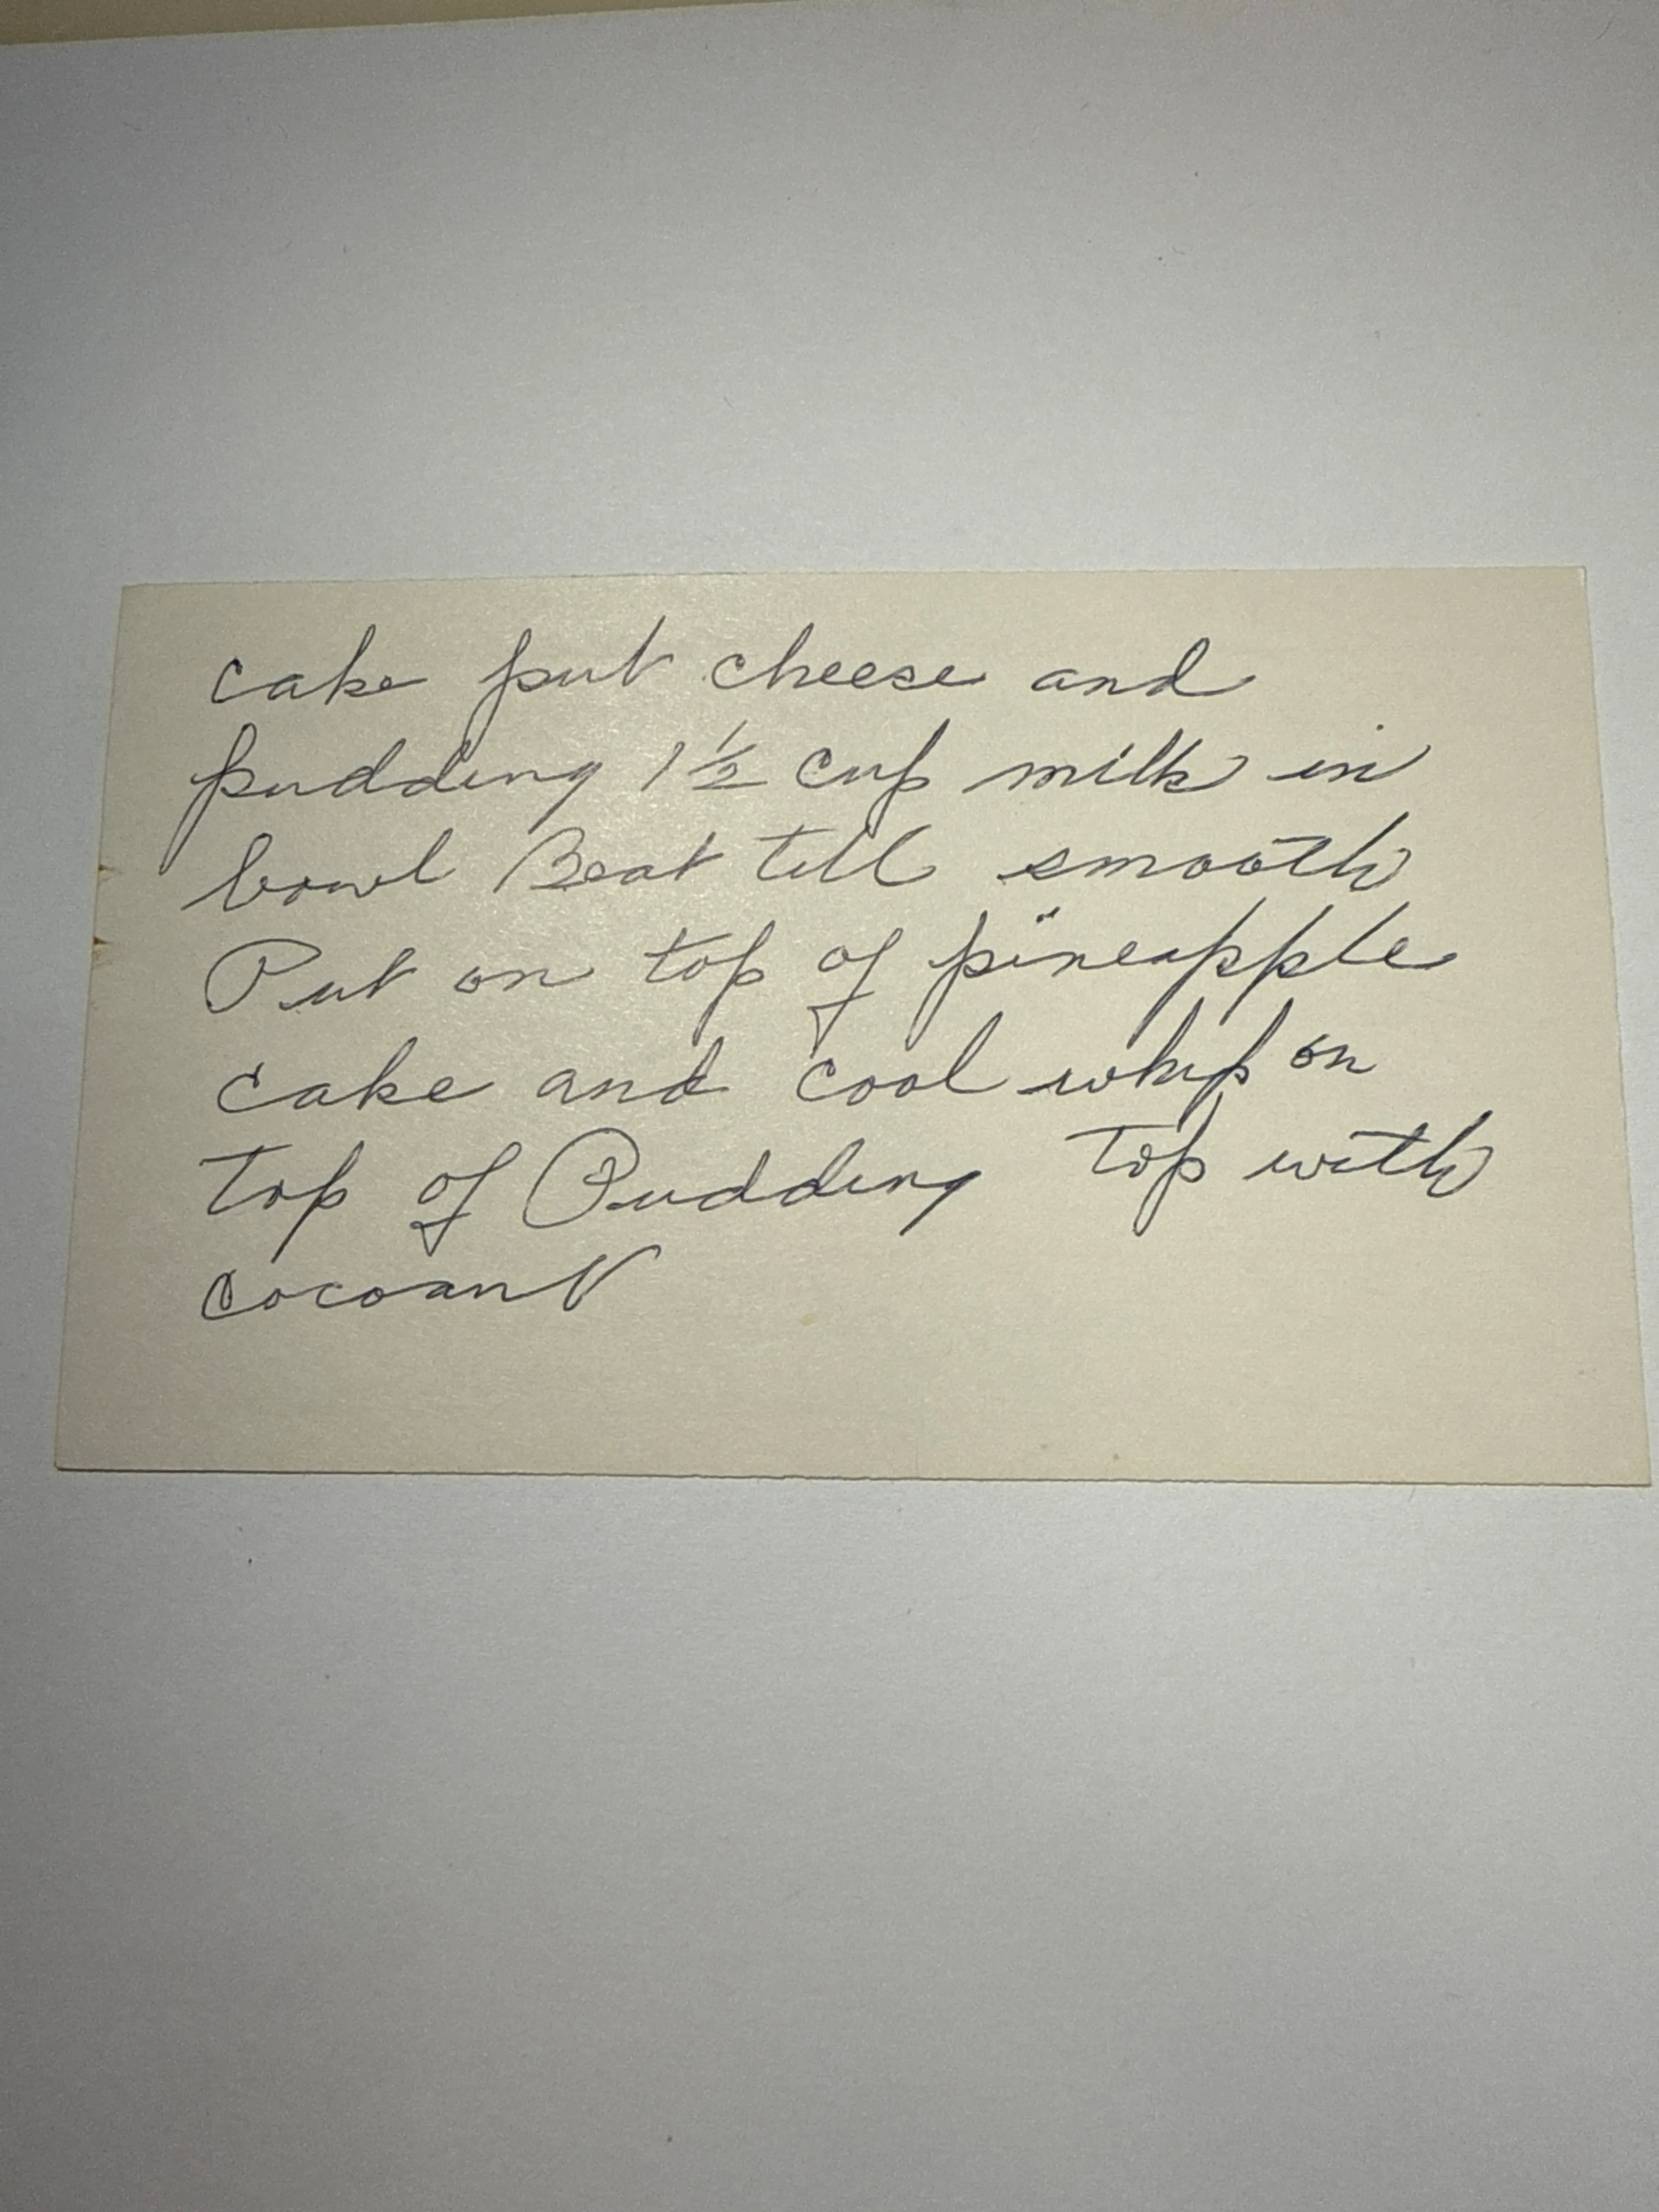 cake put cheese and
pudding 1 1/2 cup milk in
bowl Beat till smooth
Put on top of pineapple
cake and cool whip on
top of Pudding top with
cocoanut